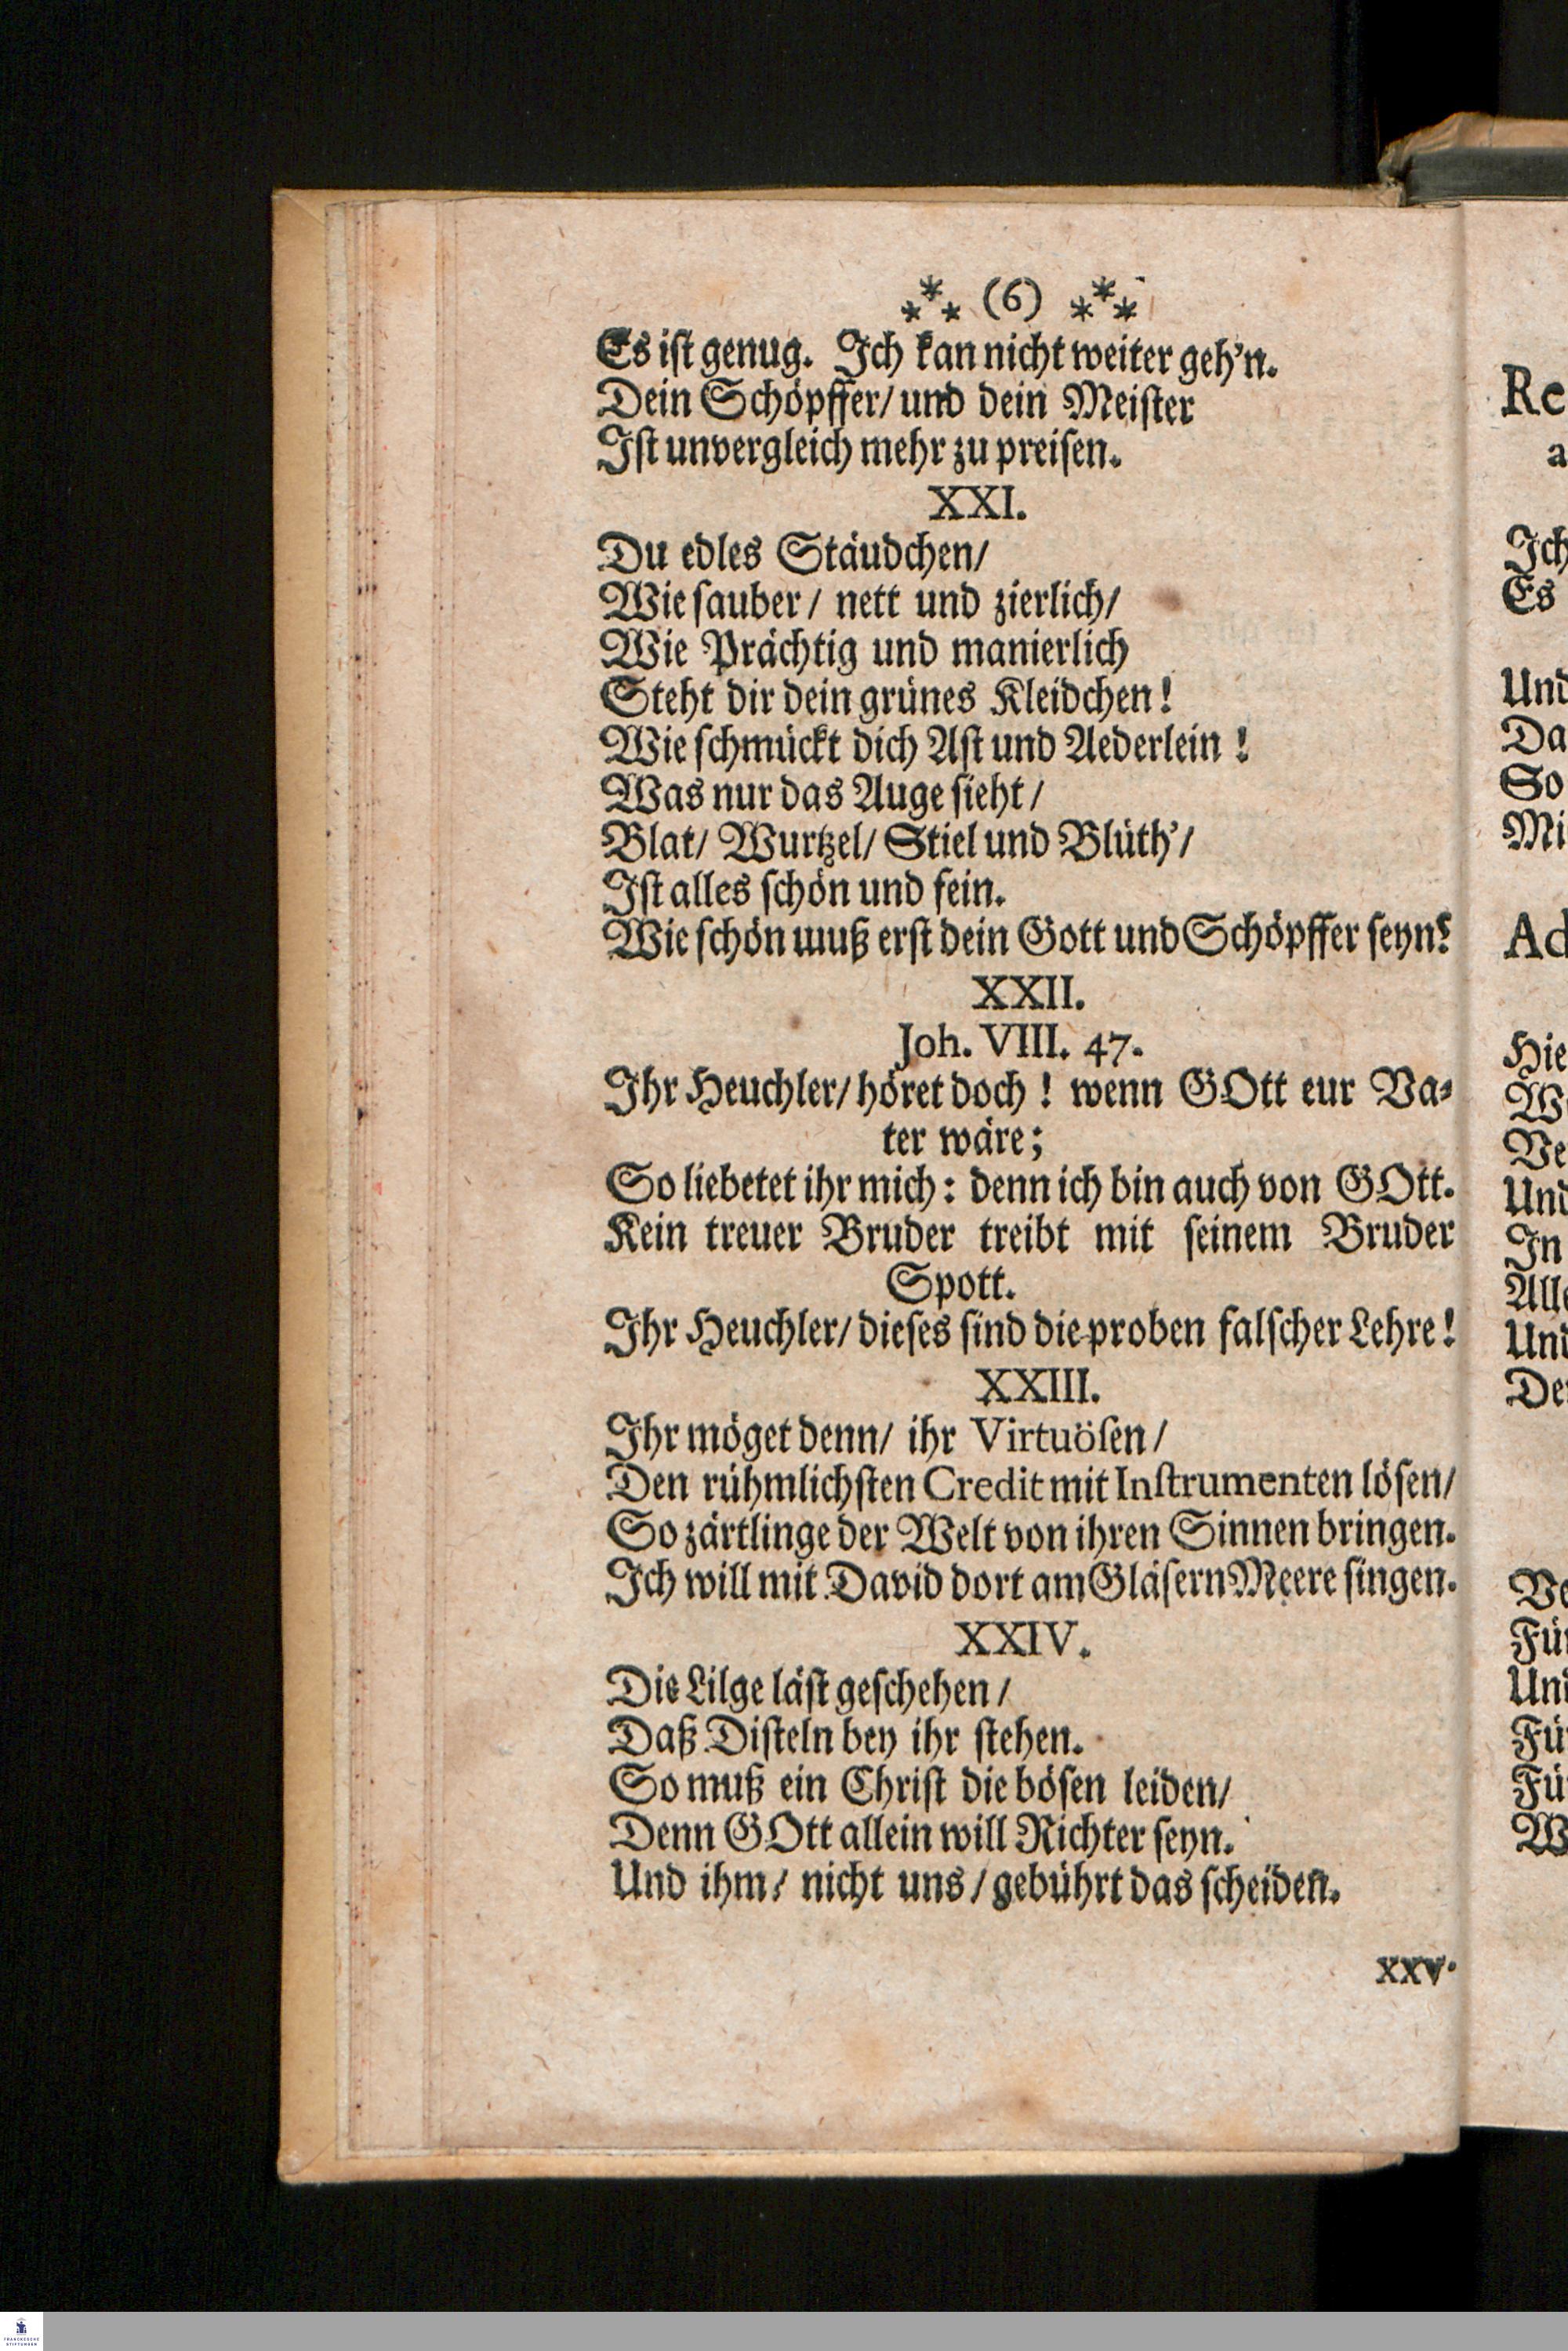 ⁂ (6) ⁂
Es iſt genug. Ich kan nicht weiter geh’n.
Dein Schöpffer/ und dein Meiſter
Iſt unvergleich mehr zu preiſen.
XXI.
Du edles Stäudchen/
Wie ſauber/ nett und zierlich/
Wie Prächtig und manierlich
Steht dir dein grünes Kleidchen!
Wie ſchmückt dich Aſt und Aederlein!
Was nur das Auge ſieht/
Blat/ Wurtzel/ Stiel und Blüth’/
Iſt alles ſchön und fein.
Wie ſchön muß erſt dein Gott und Schöpffer ſeyn?
XXII.
Joh. VIII. 47.
Ihr Heuchler/ höret doch! wenn GOtt eur Va-
ter wäre;
So liebetet ihr mich: denn ich bin auch von GOtt.
Kein treuer Bruder treibt mit ſeinem Bruder
Spott.
Ihr Heuchler/ dieſes ſind die proben falſcher Lehre!
XXIII.
Ihr möget denn/ ihr Virtuöſen/
Den rühmlichſten Credit mit Inſtrumenten löſen/
So zärtlinge der Welt von ihren Sinnen bringen.
Ich will mit David dort am Gläſern Meere ſingen.
XXIV.
Die Lilge läſt geſchehen/
Daß Diſteln bey ihr ſtehen.
So muß ein Chriſt die böſen leiden/
Denn GOtt allein will Richter ſeyn.
Und ihm/ nicht uns/ gebührt das ſcheiden.
XXV.
Re
a
Ich
Es
Und
Da
So
Mi
Ad
Hie
W
Ve
Und
In
Alle
Und
De
Ve
Für
Und
Fü
Fü
W
FRANCKESCHE
STIFTUNGEN